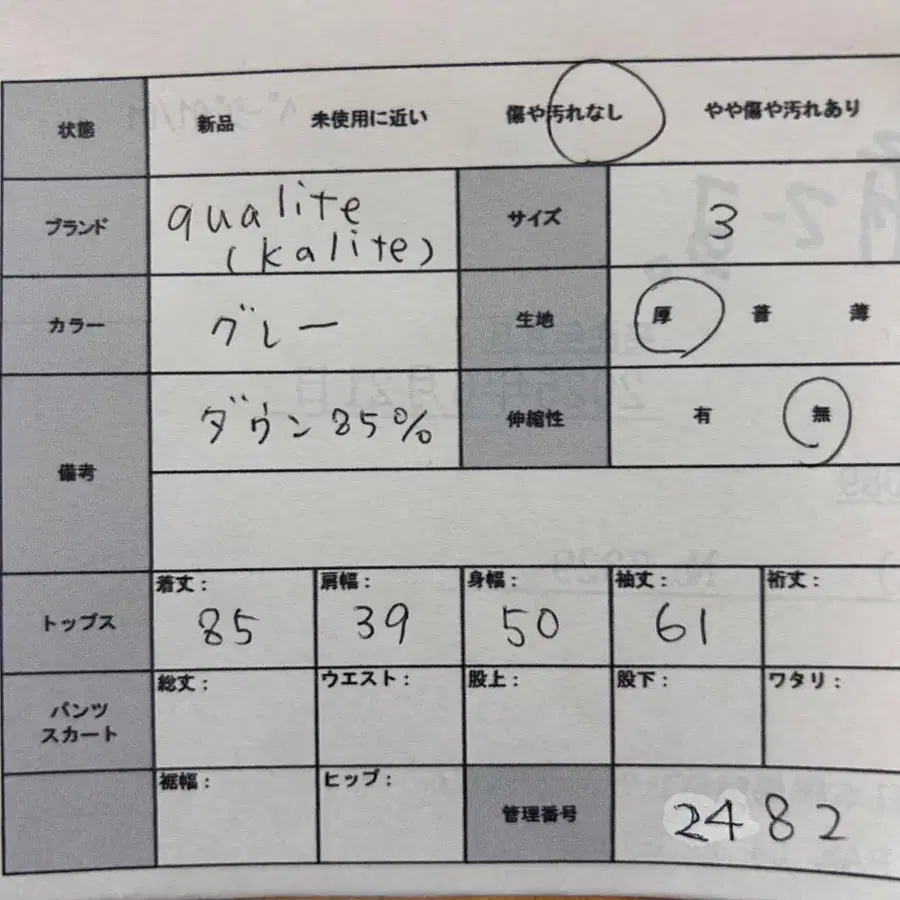 状態 新品 未使用に近い 傷や汚れなし やや傷や汚れあり
ブランド qualite サイズ 3
(kalite)
カラー グレー 生地 厚 普 薄
備考 ダウン 85% 伸縮性 有 無
トップス 着丈: 85 肩幅: 39 身幅: 50 袖丈: 61 裄丈:
パンツ 総丈: ウエスト: 股上: 股下: ワタリ:
スカート
裾幅: ヒップ: 管理番号 2482